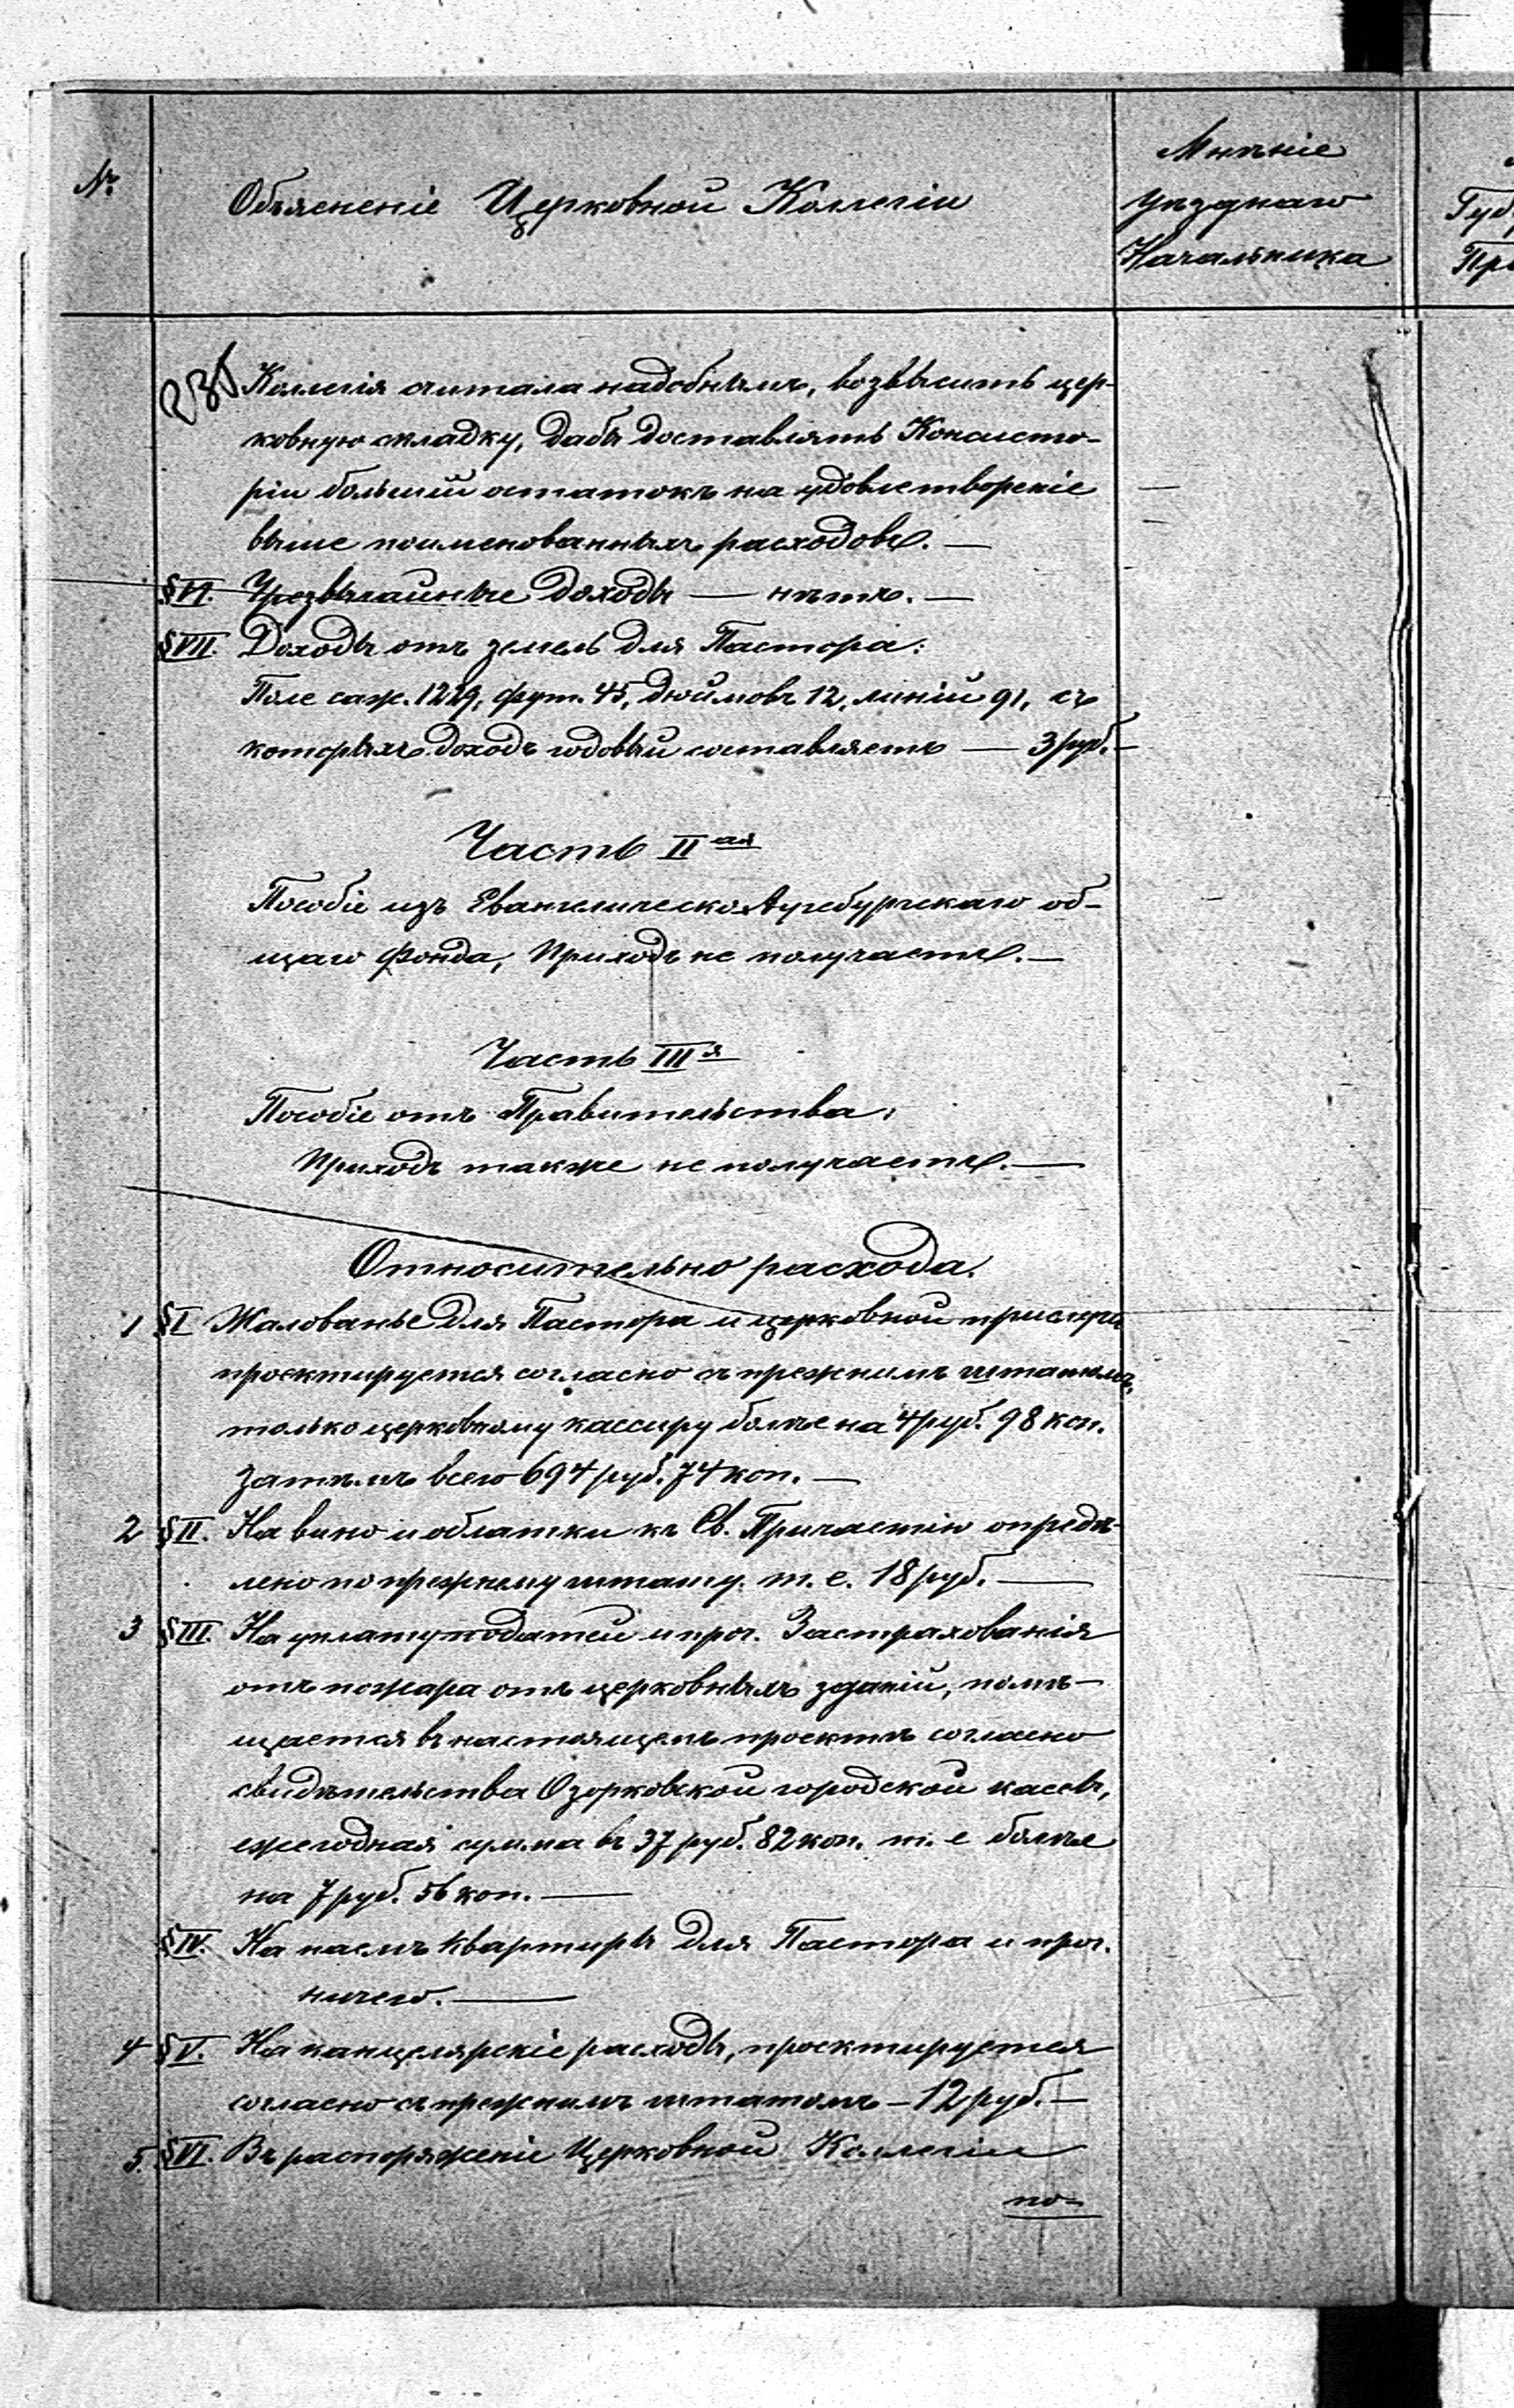 №
Объясненіе Церковной Коллегіи
Мнѣніе
Уѣзднаго
Начальника
Губ
Пра
231
Коллегія считала надобнымъ, возвысить цер-
ковную складку, дабы доставлять Консисто-
ріи большій остатокъ на удовлетвореніе
выше поименованныхъ расходовъ. —
§ VI. Чрезвычайные доходы — нѣтъ. —
§ VII. Доходы отъ земель для Пастора:
Поле саж. 1229, фут. 45, дюймовъ 12, линій 91, съ
которыхъ доходъ годовый составляетъ — 3 руб. —
Часть II ая
Пособіе изъ Евангелическо Аугсбургскаго об-
щаго Фонда, Приходъ не получаетъ. —
Часть III я
Пособіе отъ Правительства,
Приходъ также не получаетъ. —
Относительно расхода.
1 § I Жалованье для Пастора и церковной прислуги
проектируется согласно съ прежнимъ штатомъ,
только церковному кассиру болѣе на 4 руб. 98 коп.
затѣмъ всего 694 руб. 74 коп. —
2 § II. На вино и облатки къ Св. Причастію опредѣ-
лено по прежнему штату. т. е. 18 руб. —
3 § III. На уплату податей и проч. Застрахованія
отъ пожара отъ церковныхъ зданій, помѣ-
щается въ настоящемъ проектѣ согласно
свидѣтельства Озорковской городской кассы,
ежегодная сумма въ 37 руб. 82 коп. т. е болѣе
на 7 руб. 56 коп. —
§ IV. На наемъ квартиры для Пастора и проч.
ничего. —
4 § V. На канцелярскіе расходы, проектируется
согласно съ прежнимъ штатомъ — 12 руб. —
5. § VI. Въ распоряженіе Церковной Коллегіи
по-